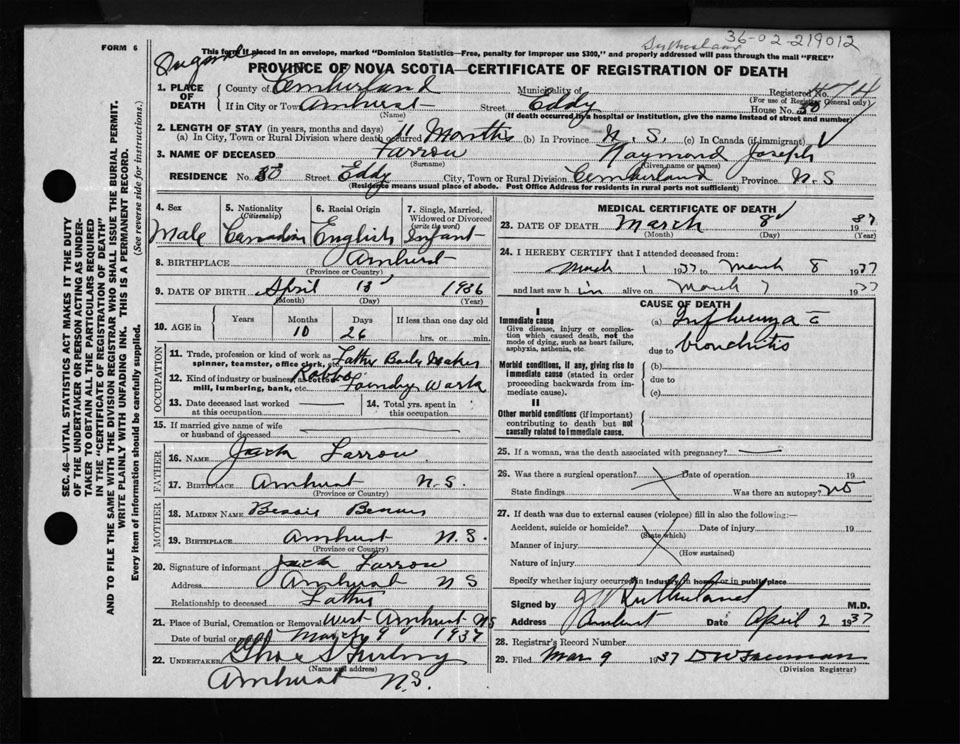 36-02-219012
FORM 6
This form if placed in an envelope, marked "Dominion Statistics—Free, penalty for improper use $300," and properly addressed will pass through the mail "FREE"
PROVINCE OF NOVA SCOTIA—CERTIFICATE OF REGISTRATION OF DEATH
1. PLACE OF DEATH
County of Cumberland Municipality of Registered No.
(For use of Registrar General only)
If in City or Town Amherst Street Eddy House No.
(Name) (If death occurred in a hospital or institution, give the name instead of street and number)
2. LENGTH OF STAY (in years, months and days)
(a) In City, Town or Rural Division where death occurred 11 Months (b) In Province N.S. (c) In Canada (if immigrant)
3. NAME OF DECEASED Farrow Raymond Joseph
(Surname) (Given name or names)
RESIDENCE No. Street Eddy City, Town or Rural Division Cumberland Province N-S
(Residence means usual place of abode. Post Office Address for residents in rural parts not sufficient)
4. Sex Male
5. Nationality (Citizenship) Canadian
6. Racial Origin English
7. Single, Married, Widowed or Divorced (write the word) Infant
8. BIRTHPLACE Amherst
(Province or Country)
9. DATE OF BIRTH April 13 1936
(Month) (Day) (Year)
10. AGE in Years Months Days If less than one day old
10 26 hrs. or min.
OCCUPATION
11. Trade, profession or kind of work as spinner, teamster, office clerk, etc.
12. Kind of industry or business, as cotton mill, lumbering, bank, etc.
13. Date deceased last worked at this occupation
14. Total yrs. spent in this occupation
15. If married give name of wife or husband of deceased
FATHER
16. NAME Jack Farrow
17. BIRTHPLACE Amherst N.S.
(Province or Country)
MOTHER
18. MAIDEN NAME Bessie
19. BIRTHPLACE Amherst N.S.
(Province or Country)
20. Signature of informant Jack Farrow
Address Amherst N S
Relationship to deceased Father
21. Place of Burial, Cremation or Removal West Amherst N S
Date of burial March 9 1937
22. UNDERTAKER
(Name and address)
Amherst N.S.
MEDICAL CERTIFICATE OF DEATH
23. DATE OF DEATH March 8 1937
(Month) (Day) (Year)
24. I HEREBY CERTIFY that I attended deceased from:
March 1 1937 to March 8 1937
and last saw him alive on March 7 1937
CAUSE OF DEATH
I
Immediate cause
Give disease, injury or complication which caused death, not the mode of dying, such as heart failure, asphyxia, asthenia, etc.
(a) Influenza c̄
due to bronchitis
Morbid conditions, if any, giving rise to immediate cause (stated in order proceeding backwards from immediate cause).
(b)
due to
(c)
II
Other morbid conditions (if important) contributing to death but not causally related to immediate cause.
25. If a woman, was the death associated with pregnancy?
26. Was there a surgical operation? Date of operation 19
State findings Was there an autopsy? no
27. If death was due to external causes (violence) fill in also the following:—
Accident, suicide or homicide? Date of injury 19
(State which)
Manner of injury
(How sustained)
Nature of injury
Specify whether injury occurred in industry, in home, or in public place
Signed by Sutherland M.D.
Address Amherst Date April 2 1937
28. Registrar's Record Number
29. Filed Mar 9 1937
(Division Registrar)
SEC. 46—VITAL STATISTICS ACT MAKES IT THE DUTY
OF THE UNDERTAKER OR PERSON ACTING AS UNDER-
TAKER TO OBTAIN ALL THE PARTICULARS REQUIRED
IN THE "CERTIFICATE OF REGISTRATION OF DEATH"
AND TO FILE THE SAME WITH THE DIVISION REGISTRAR WHO SHALL ISSUE THE BURIAL PERMIT.
WRITE PLAINLY WITH UNFADING INK. THIS IS A PERMANENT RECORD.
Every item of information should be carefully supplied. (See reverse side for instructions.)